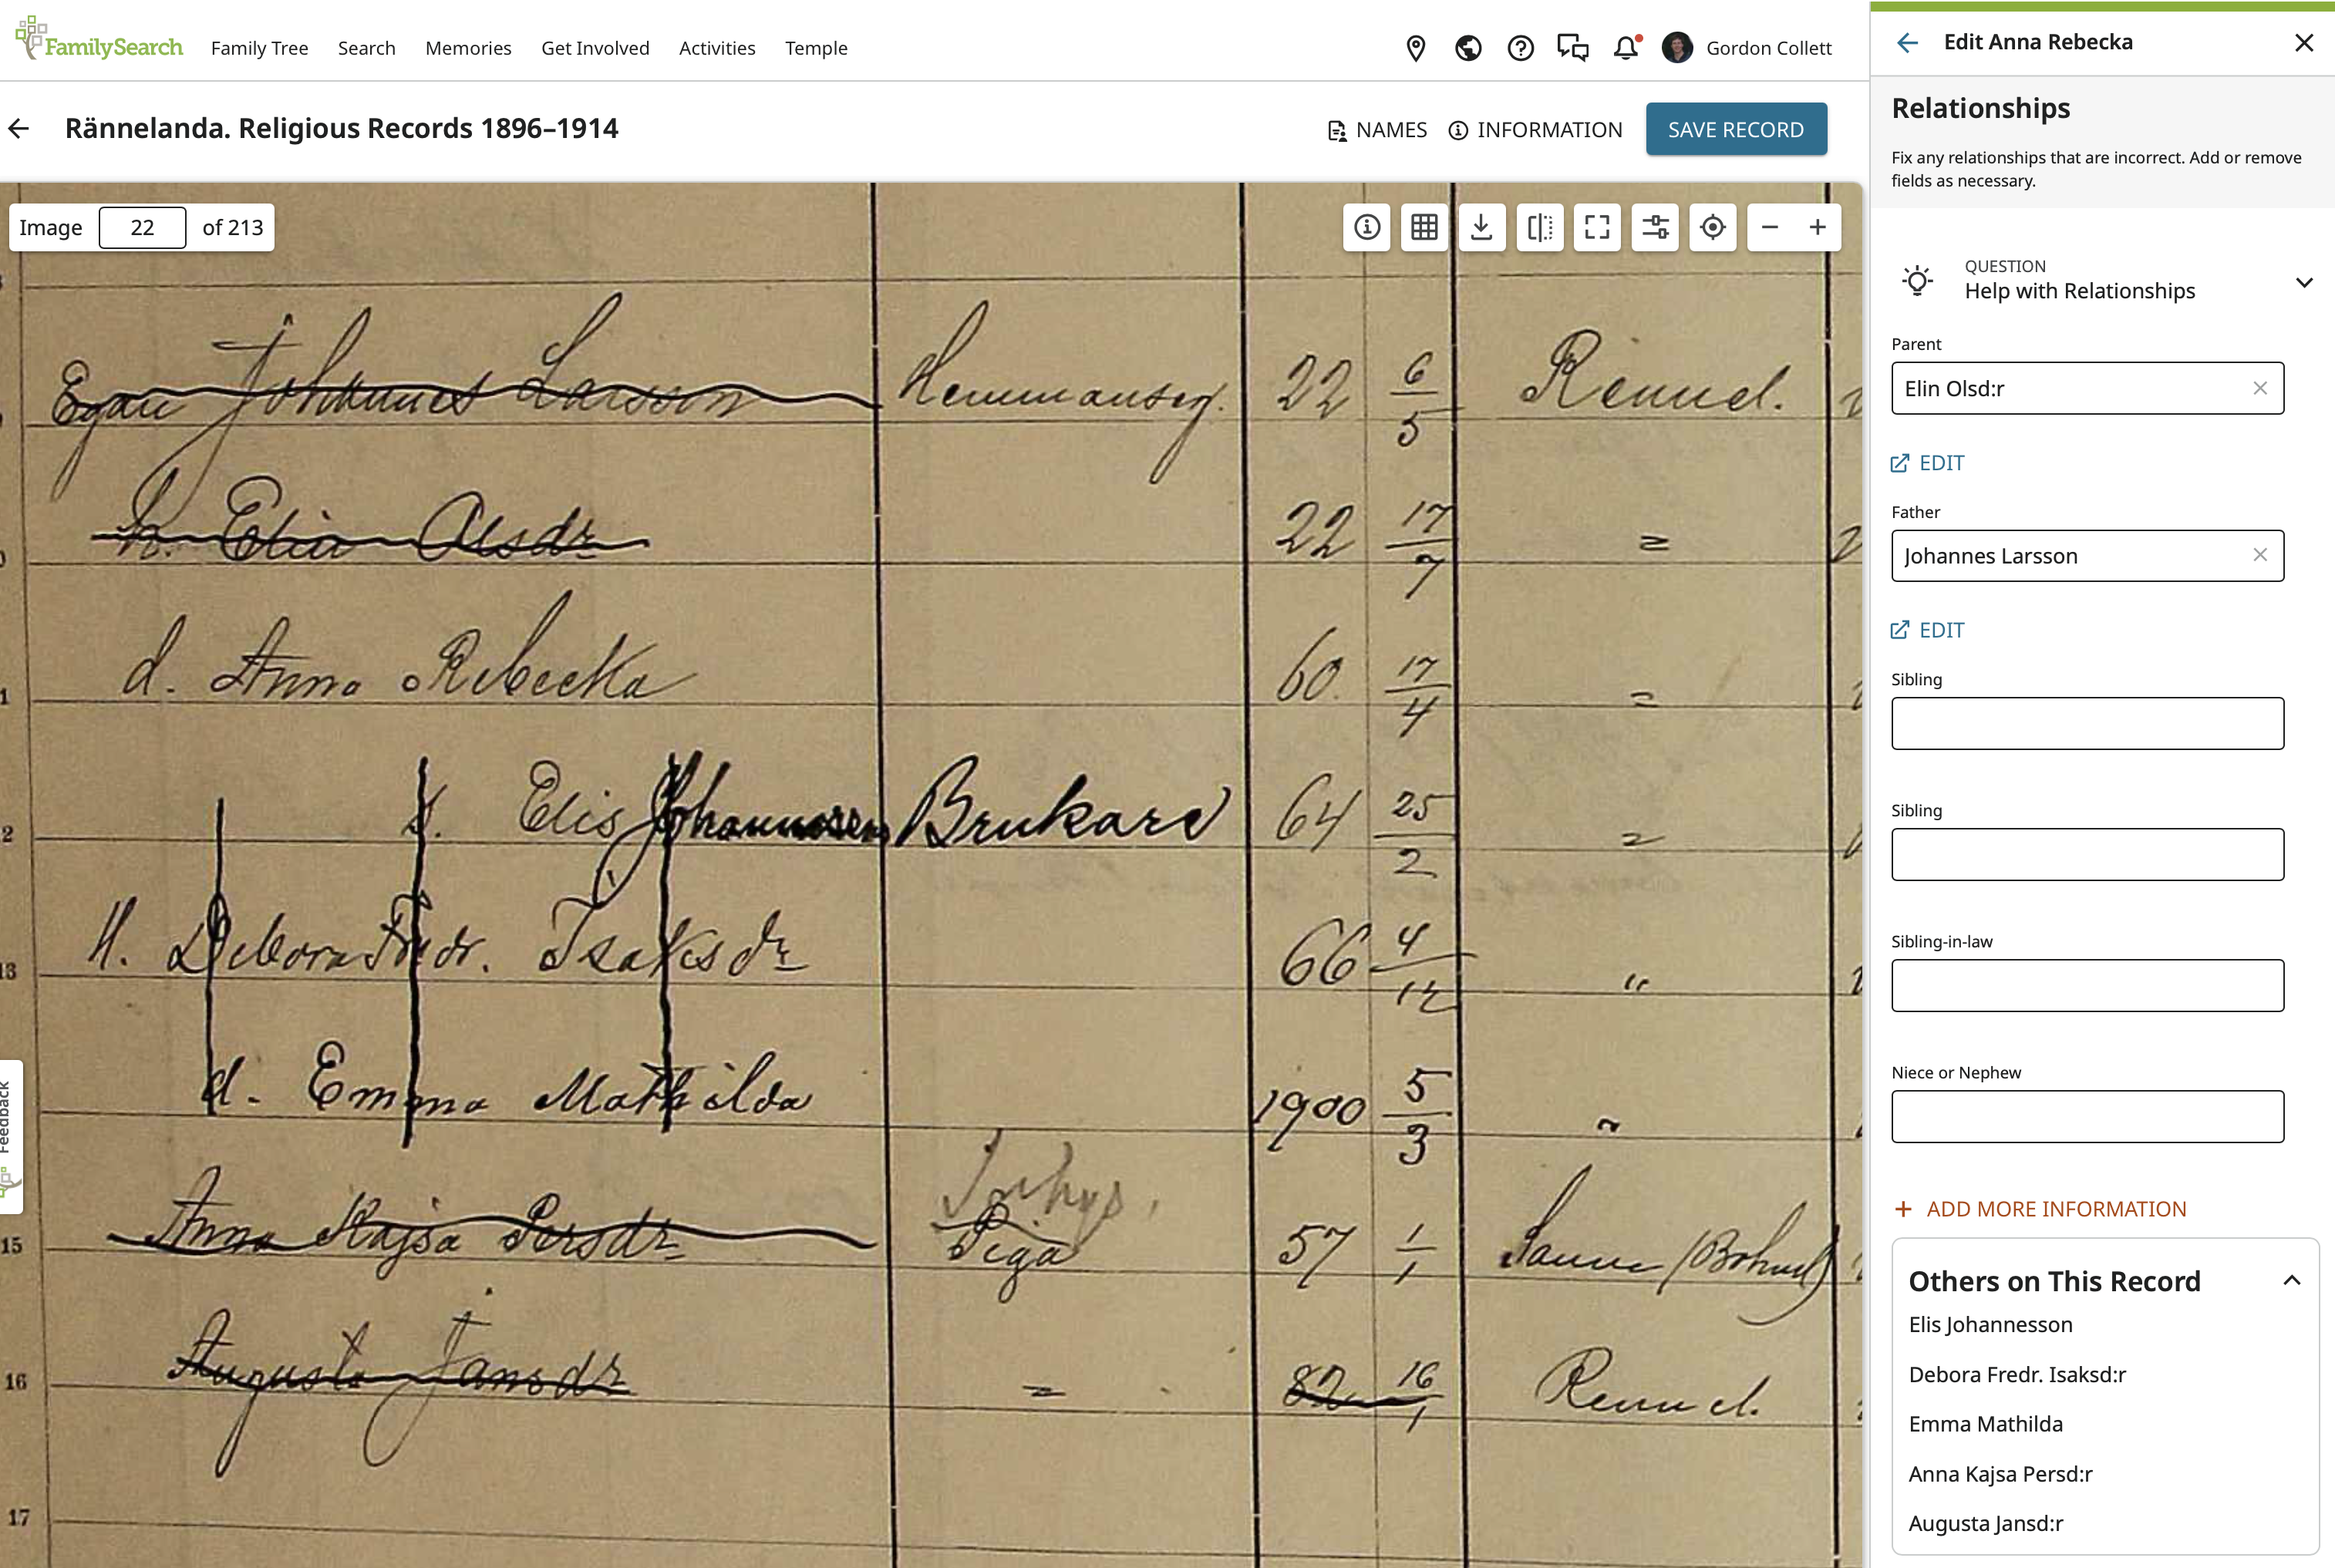 FamilySearch Family Tree Search Memories Get Involved Activities Temple Gordon Collett
Rännelanda. Religious Records 1896–1914 NAMES INFORMATION SAVE RECORD
Image 22 of 213
Egan Johannes Larsson Hemmanseg. 22 6/5 Rennel.
9
h. Elin Olsdr 22 17/7 =
0
d. Anna Rebecka 60. 17/4 =
1
s. Elis Johannesson Brukare 64 25/2 =
2
H. Debora Fredr. Isaksdr 66 4/12 "
13
d. Emma Mathilda 1900 5/3 "
Inhys.
15 Anna Kajsa Persdr Piga 57 1/1 Sanne (Bohusl)
16 Augusta Jansdr = 82 16/1 Rennel.
17
Feedback
Edit Anna Rebecka
Relationships
Fix any relationships that are incorrect. Add or remove
fields as necessary.
QUESTION
Help with Relationships
Parent
Elin Olsd:r
EDIT
Father
Johannes Larsson
EDIT
Sibling
Sibling
Sibling-in-law
Niece or Nephew
+ ADD MORE INFORMATION
Others on This Record
Elis Johannesson
Debora Fredr. Isaksd:r
Emma Mathilda
Anna Kajsa Persd:r
Augusta Jansd:r